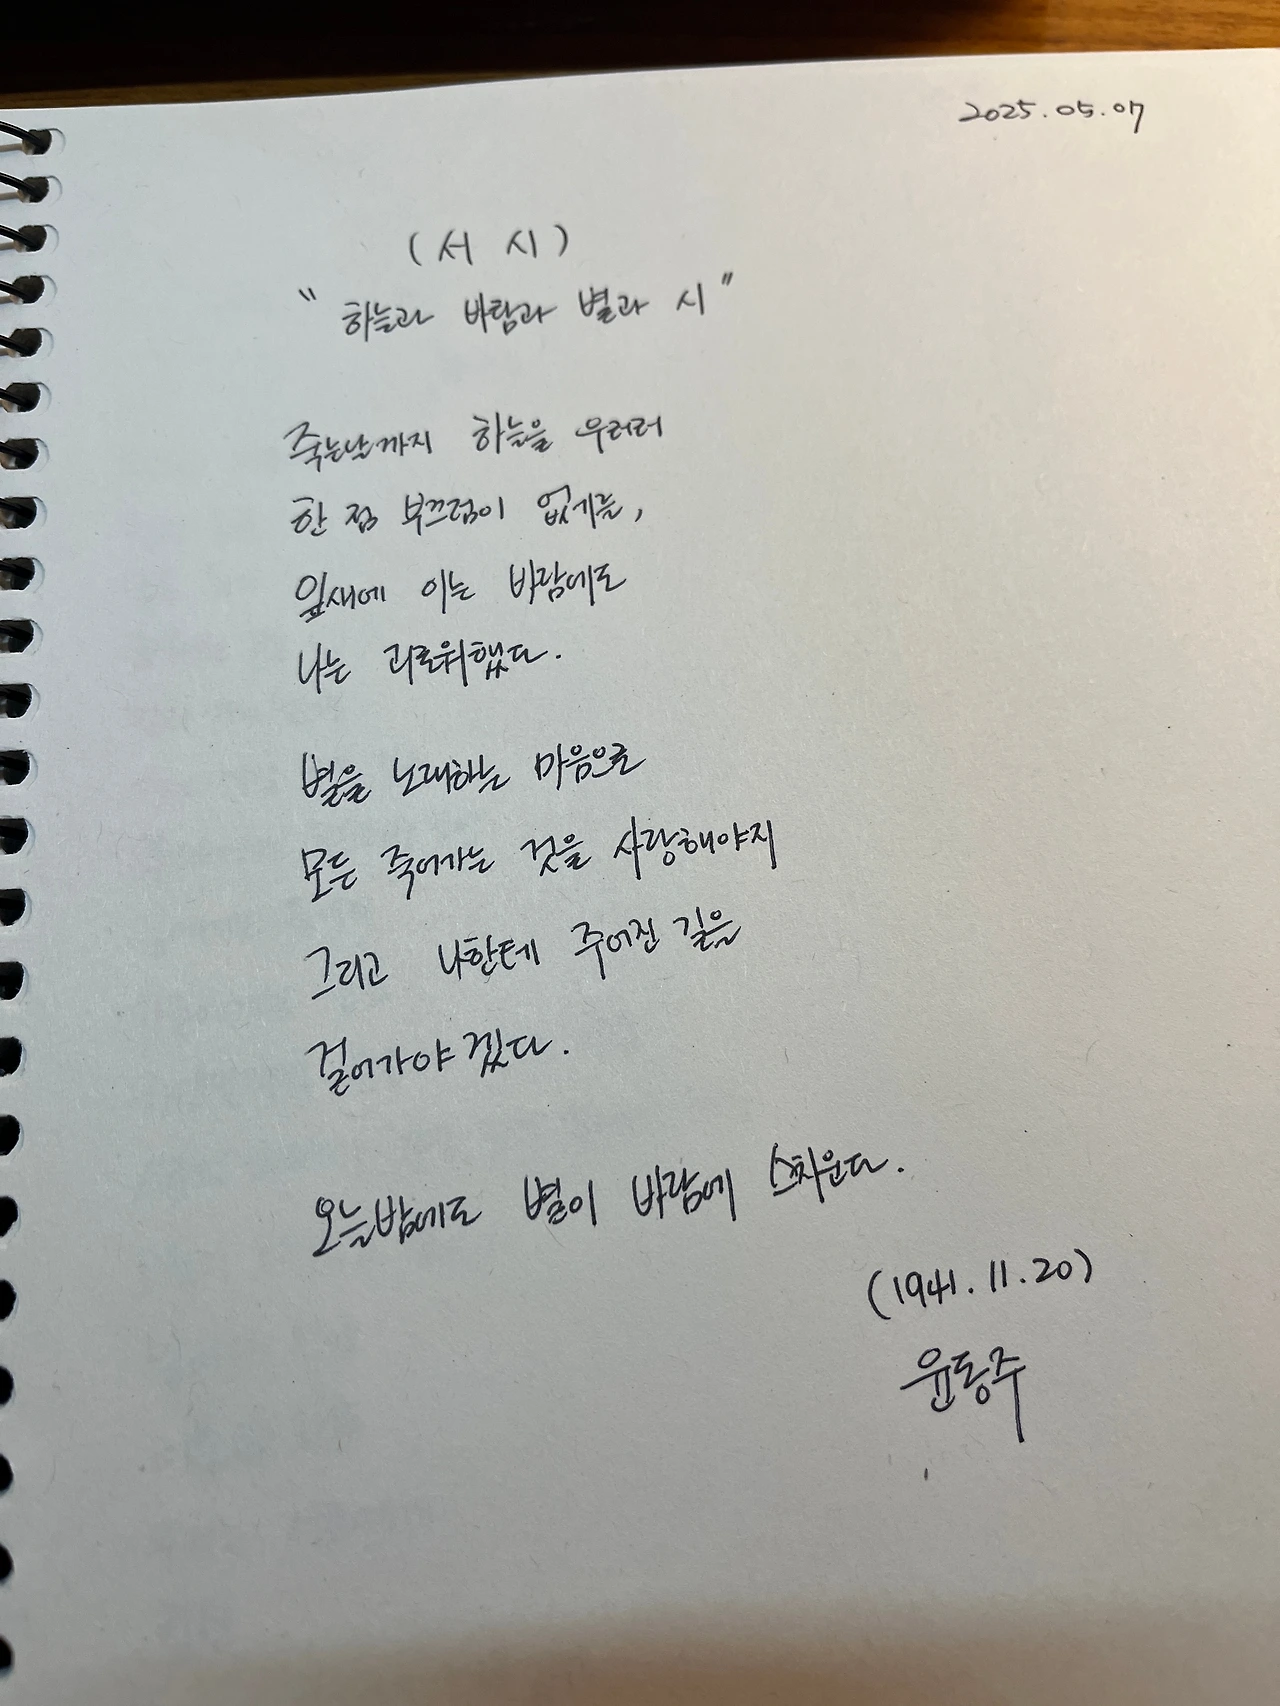 2025.05.07
(서 시)
"하늘과 바람과 별과 시"
죽는날까지 하늘을 우러러
한 점 부끄럼이 없기를,
잎새에 이는 바람에도
나는 괴로워했다.
별을 노래하는 마음으로
모든 죽어가는 것을 사랑해야지
그리고 나한테 주어진 길을
걸어가야겠다.
오늘밤에도 별이 바람에 스치운다.
(1941.11.20)
윤동주